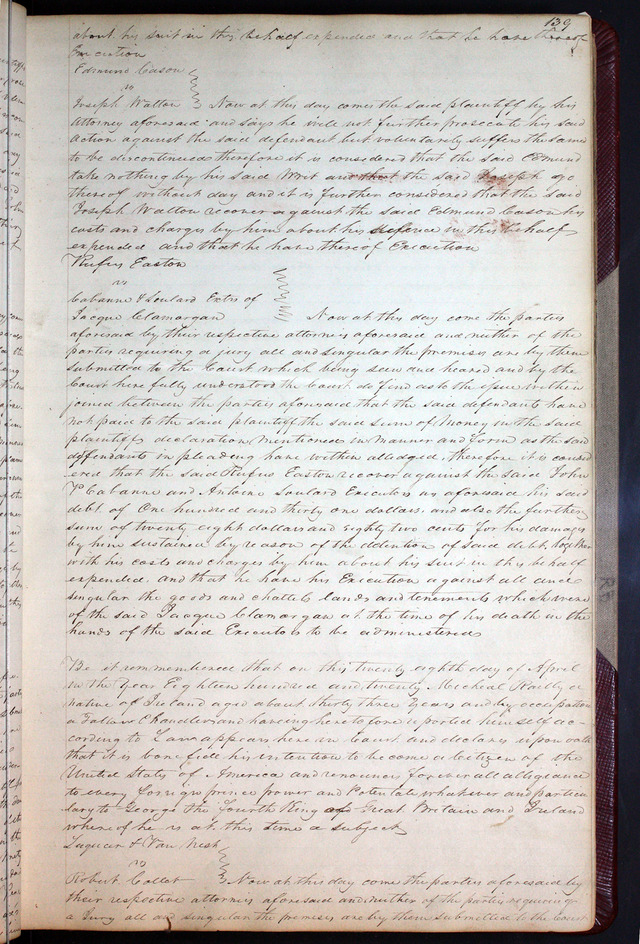 139
about his suit in this behalf expended and that he have thereof
Execution
Edmund Cason
vs
Joseph Walton Now at this day comes the said plaintiff by his
Attorney aforesaid and says he will not further prosecute his said
action against the said defendant but voluntarily suffers the same
to be discontinued therefore it is considered that the said Edmund
take nothing by his said Writ and that the said Joseph go
thereof without day and it is further considered that the said
Joseph Walton recover against the said Edmund Cason his
costs and charges by him about his defence in this behalf
expended and that he have thereof Execution
Rufus Easton
vs
Cabanne & Soulard Extrs of
Jacque Clamorgan Now at this day come the parties
aforesaid by their respective attornies aforesaid and neither of the
parties requiring a jury all and singular the premises are by them
submitted to the Court which being seen and heared and by the
Court here fully understood the Court do find as to the issue within
joined between the parties aforesaid that the said defendants have
not paid to the said plaintiff the said sum of money in the said
plaintiffs declaration mentioned in manner and form as the said
defendants in pleading have within alledged, therefore it is consid
ered that the said Rufus Easton recover against the said John
P Cabanne and Antoine Soulard Executors as aforesaid his said
debt of One hundred and thirty one dollars. and also the further
sum of twenty eight dollars and Eighty two cents for his damages
by him sustained by reason of the detention of said debt, together
with his costs and charges by him about his suit in this behalf
expended and that he have his Execution against all and
singular the goods and chattels lands and tenements which were
of the said Jacque Clamorgan at the time of his death in the
hands of the said Executors to be administered
Be it remmembered that on this twenty eighth day of April
in the Year Eighteen hundred and twenty Micheal Railly a
native of Ireland aged about thirty three Years and by occupation
a Tallow Chandler and having heretofore reported himself ac-
cording to Law appears here in Court and declares upon oath
that it is bona fide his intention to become a citizen of the
United States of America and renounces forever all allegiance
to every foreign prince power and Potentate whatever and particu
larly to George the Fourth King of Great Britain and Ireland
where of he is at this time a subject
& Van Nest
vs
Robert Collet Now at this day come the parties aforesaid by
their respective attornies aforesaid and neither of the parties requiring
a Jury all and singular the premises are by them submitted to the Court